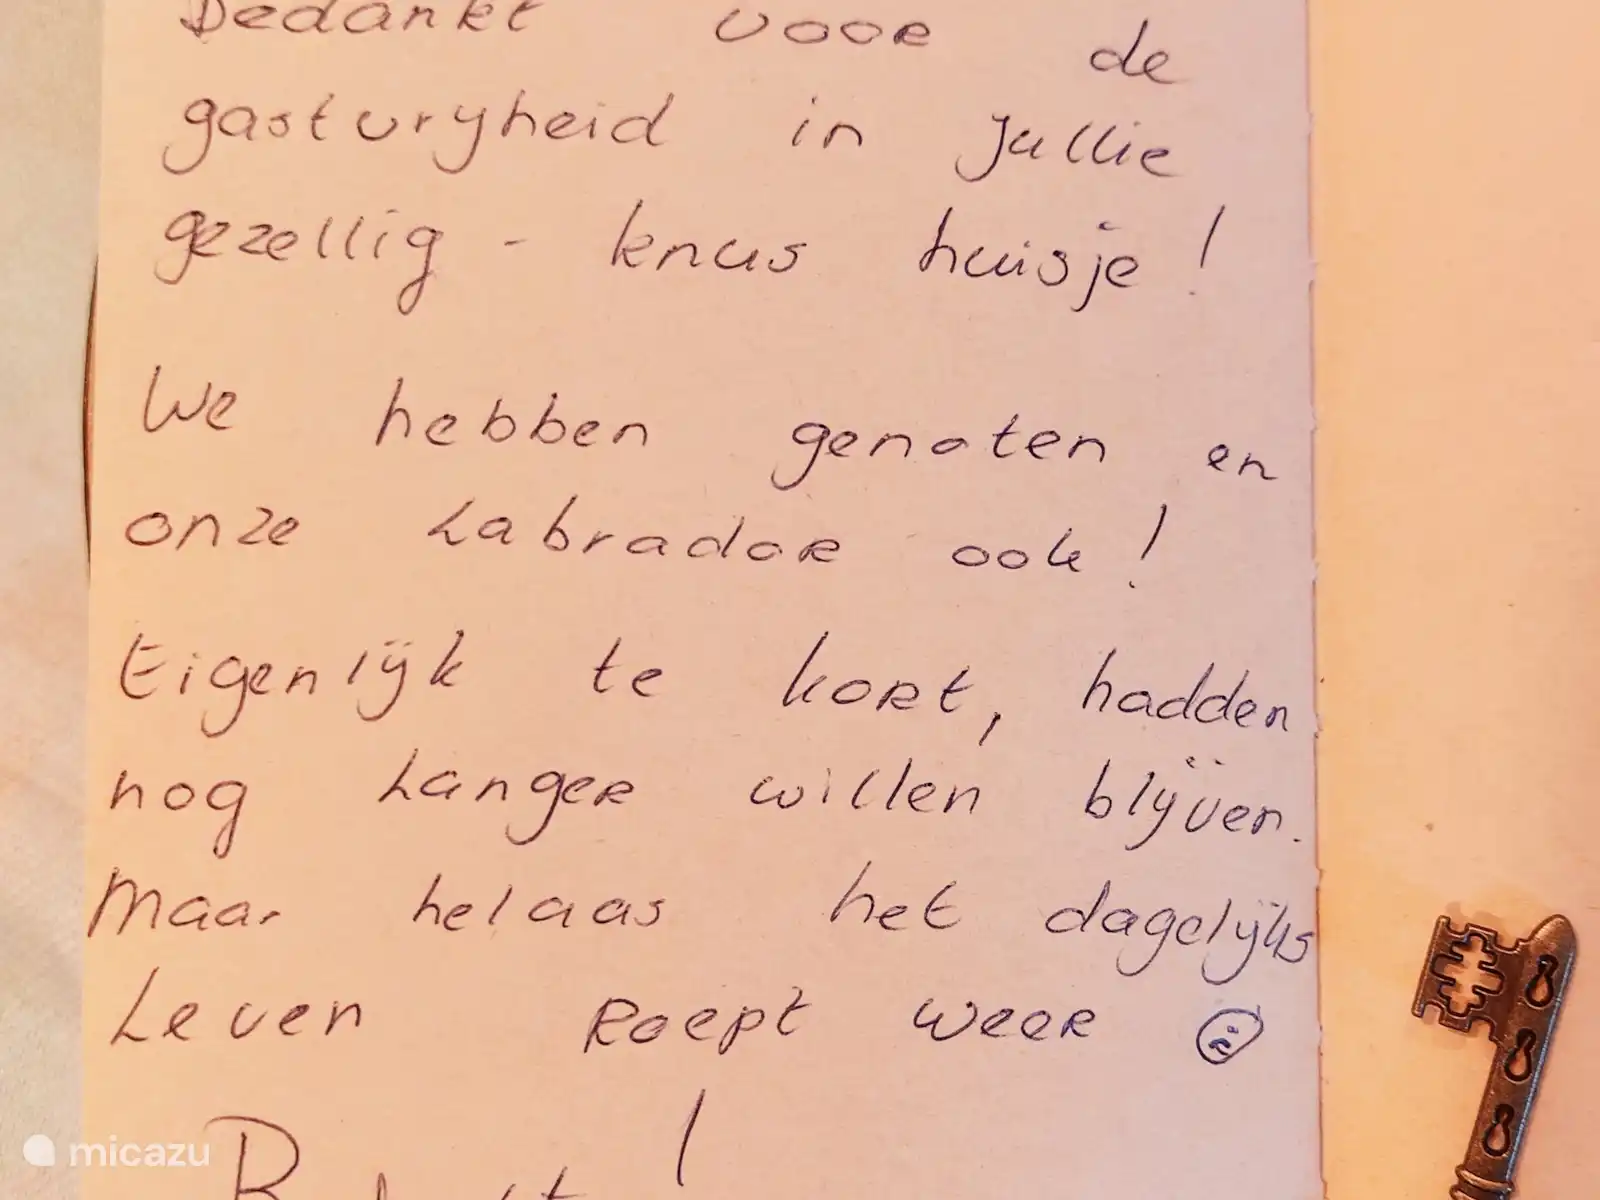 Bedankt voor de
gastvryheid in jullie
gezellig - knus huisje!
We hebben genoten en
onze Labrador ook!
Eigenlijk te kort, hadden
nog Langer willen blijven.
Maar helaas het dagelijks
Leven Roept weer ☹
micazu